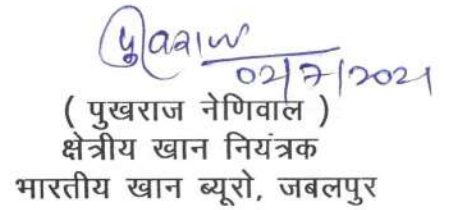 पुखराज
02/7/2021
( पुखराज नेणिवाल )
क्षेत्रीय खान नियंत्रक
भारतीय खान ब्यूरो, जबलपुर